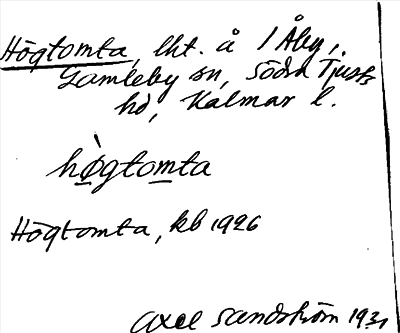 Högtomta, lht. å 1 Åby,
Gamleby sn, Södra Tjusts
hd, Kalmar l.
hø̀gtomta
Högtomta, kb 1926
Axel Sandström 1931